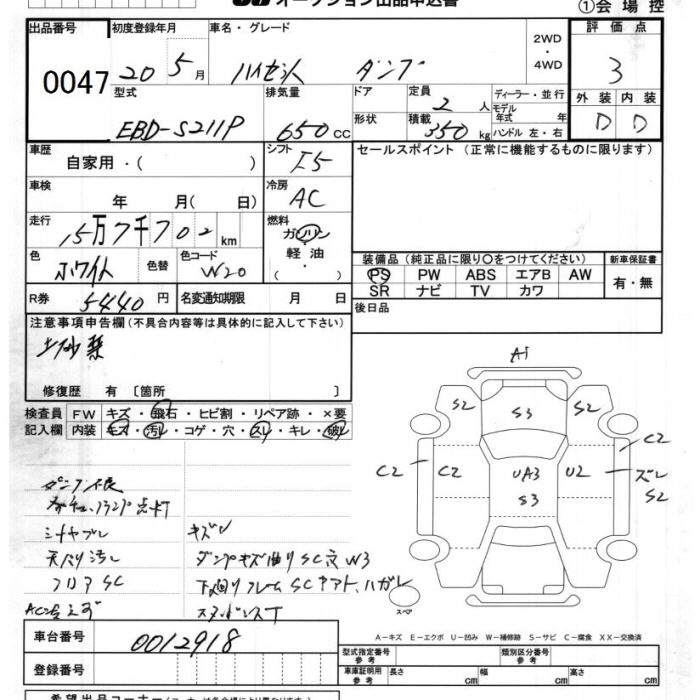 オークション出品申込書
①会場控
出品番号
0047
初度登録年月
20 5月
車名・グレード
ハイゼット ダンプ
2WD
・
4WD
評価点
3
型式
EBD-S211P
排気量
650cc
ドア
形状
定員
2人
積載
350kg
ディーラー・並行
モデル
年式 年
ハンドル 左・右
外装 内装
D D
車歴
自家用・( )
シフト
F5
セールスポイント (正常に機能するものに限ります)
車検
年 月( 日)
冷房
AC
走行
15万7千702km
燃料
ガソリン
軽油
・
( )
色
ホワイト
色替
色コード
W20
装備品 (純正品に限り〇をつけてください)
新車保証書
PS PW ABS エアB AW
SR ナビ TV カワ
有・無
R券
5440円
名変通知期限 月 日
後日品
注意事項申告欄 (不具合内容等は具体的に記入して下さい)
土砂禁
修復歴 有 〔箇所 〕
検査員
記入欄
FW キズ・飛石・ヒビ割・リペア跡・×要
内装 キズ・汚れ・コゲ・穴・スレ・キレ・破れ
ダンプ不良
シートヤブレ
天バリ汚レ
フロアSC
キズ
ダンプキズ曲りSC穴W3
下回りフレームSC
A1
S2
S3
S2
C2
C2
UA3
S3
U2
C2
ズレ
S2
スペア
A-キズ E-エクボ U-凹み W-補修跡 S-サビ C-腐食 XX-交換済
車台番号
0012918
登録番号
型式指定番号
参考
類別区分番号
参考
車庫証明用
参考
長さ cm
幅 cm
高さ cm
希望出品コーナー